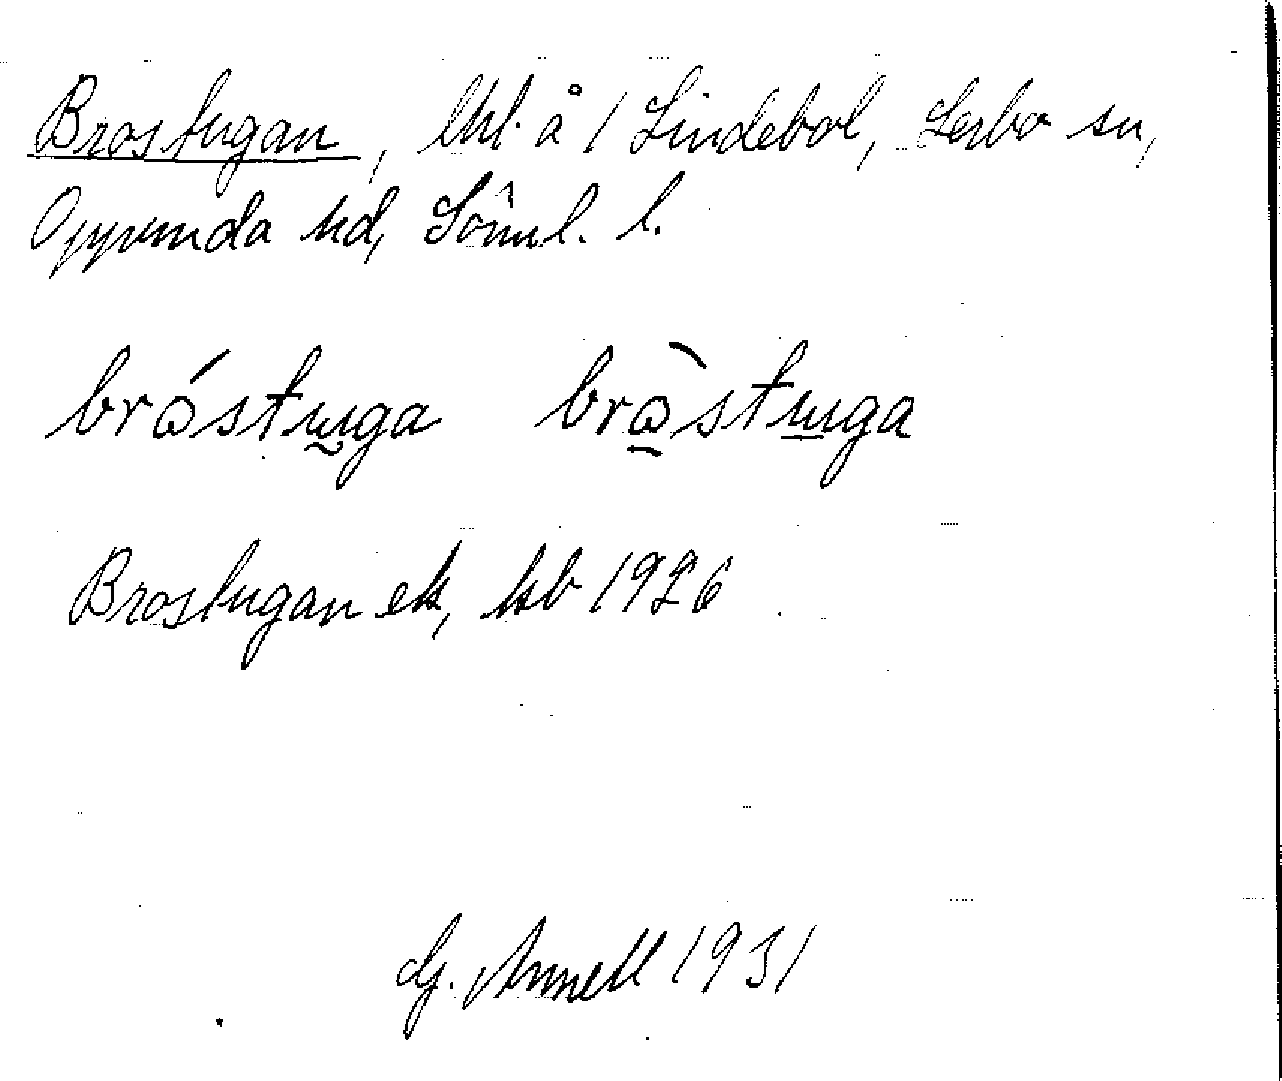 Brostugan, lht. å 1 Lindebol, Lerbo sn,
Oppunda hd, Söml. l.
bróstuga bròstuga
Brostugan ek, kb 1926
G. Annell 1931